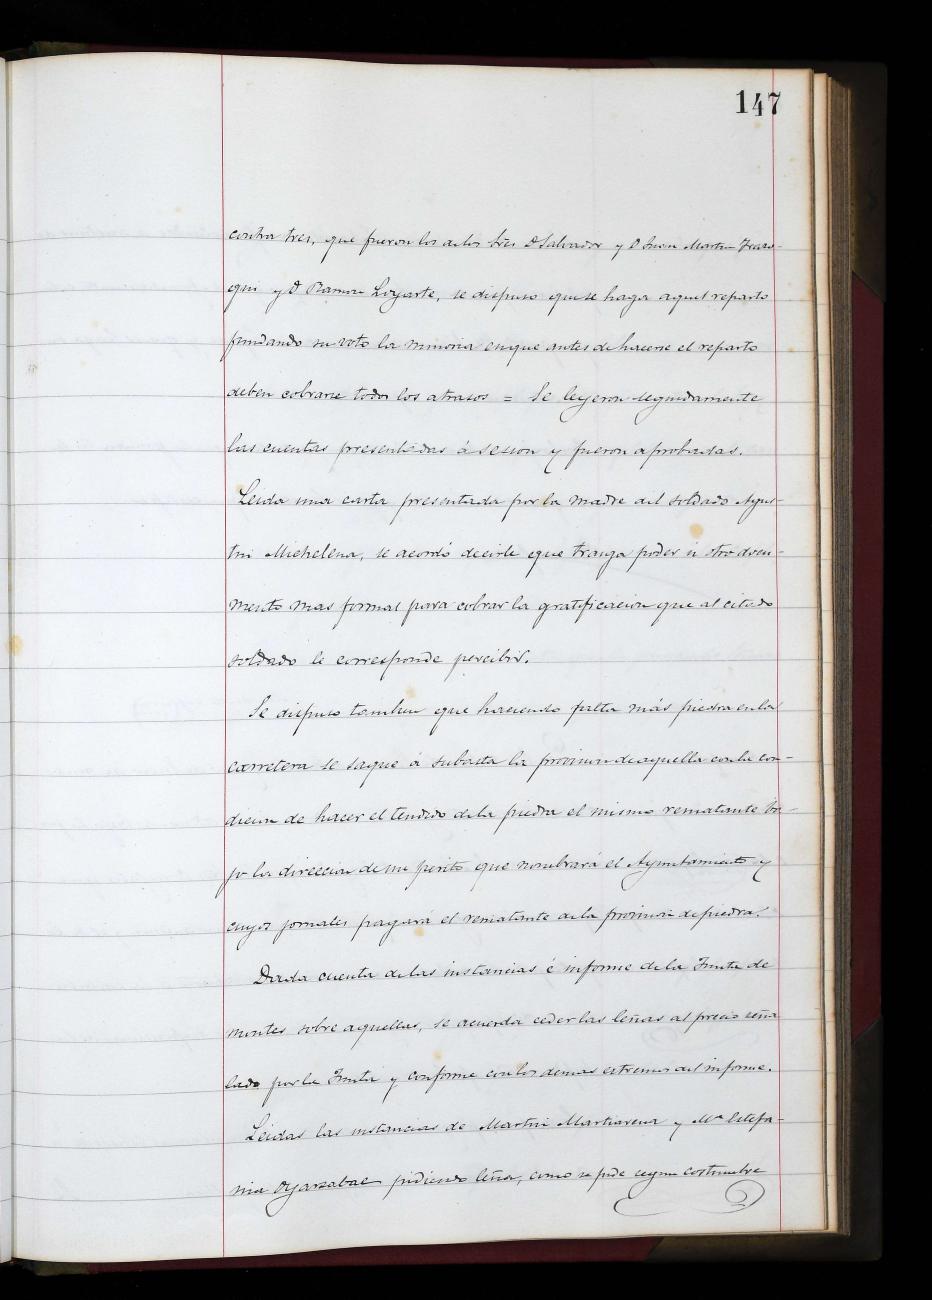 147
contra tres, que fueron los de los tres D Salvador y D Juan Martin Iraso-
qui y D Ramon Loyarte, se dispuso que se haga aquel reparto
fundando su voto la minoria en que antes de hacerse el reparto
deben cobrarse todos los atrasos = Se leyeron seguidamente
las cuentas presentadas á sesion y fueron aprobadas.
Leida una carta presentada por la madre del soldado Agus-
tin Michelena, se acordó decirle que traiga poder ú otro docu-
mento mas formal para cobrar la gratificacion que al citado
soldado le corresponde percibir.
Se dispuso tambien que haciendo falta más piedra en la
carretera se saque á subasta la provision de aquella con la con-
dicion de hacer el tendido de la piedra el mismo rematante ba-
jo la direccion de un perito que nombrará el Ayuntamiento y
cuyos jornales pagará el rematante de la provision de piedra.
Dada cuenta de las instancias é informe de la Junta de
montes sobre aquellas, se acuerda ceder las leñas al precio seña
lado por la Junta y conforme con los demas estremos del informe.
Leidas las instancias de Martin Martiarena y Mª Estefa-
nia Oyarzabal pidiendo leña, como se pide segun costumbre